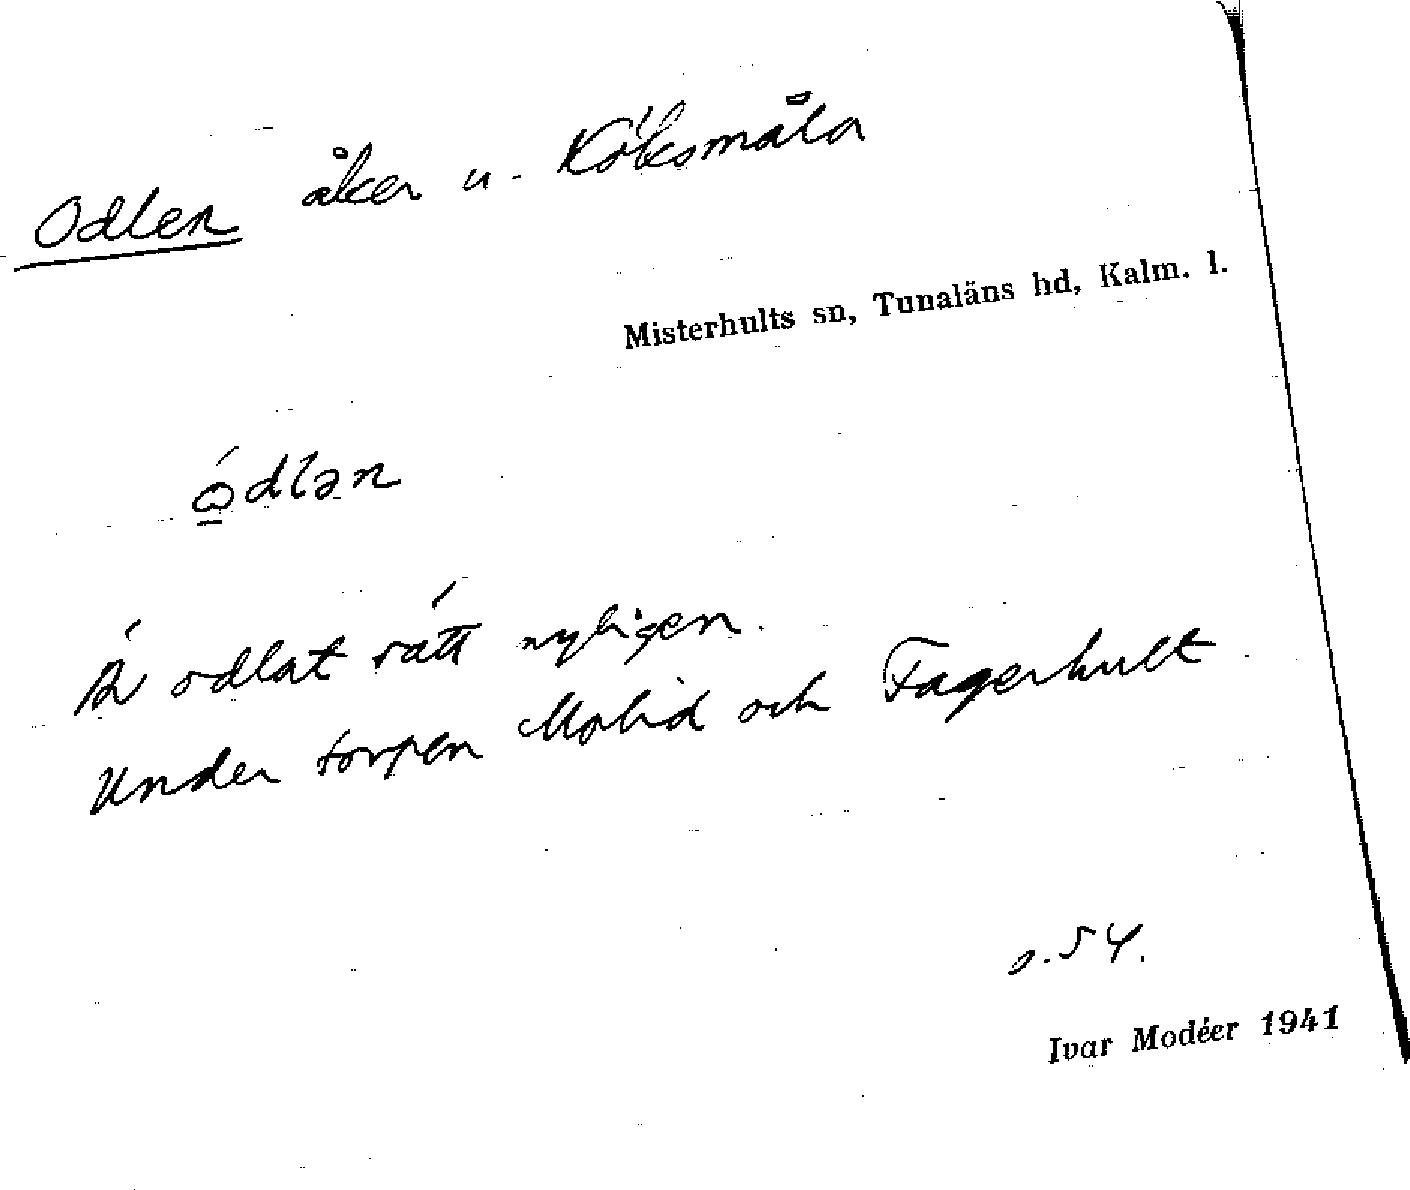 Odlen åker u. Köksmåla
Misterhults sn, Tunaläns hd, Kalm. l.
ódlən
Är odlat rätt nyligen.
Under torpen Molid och Fagerhult
s. 54.
Ivar Modéer 1941